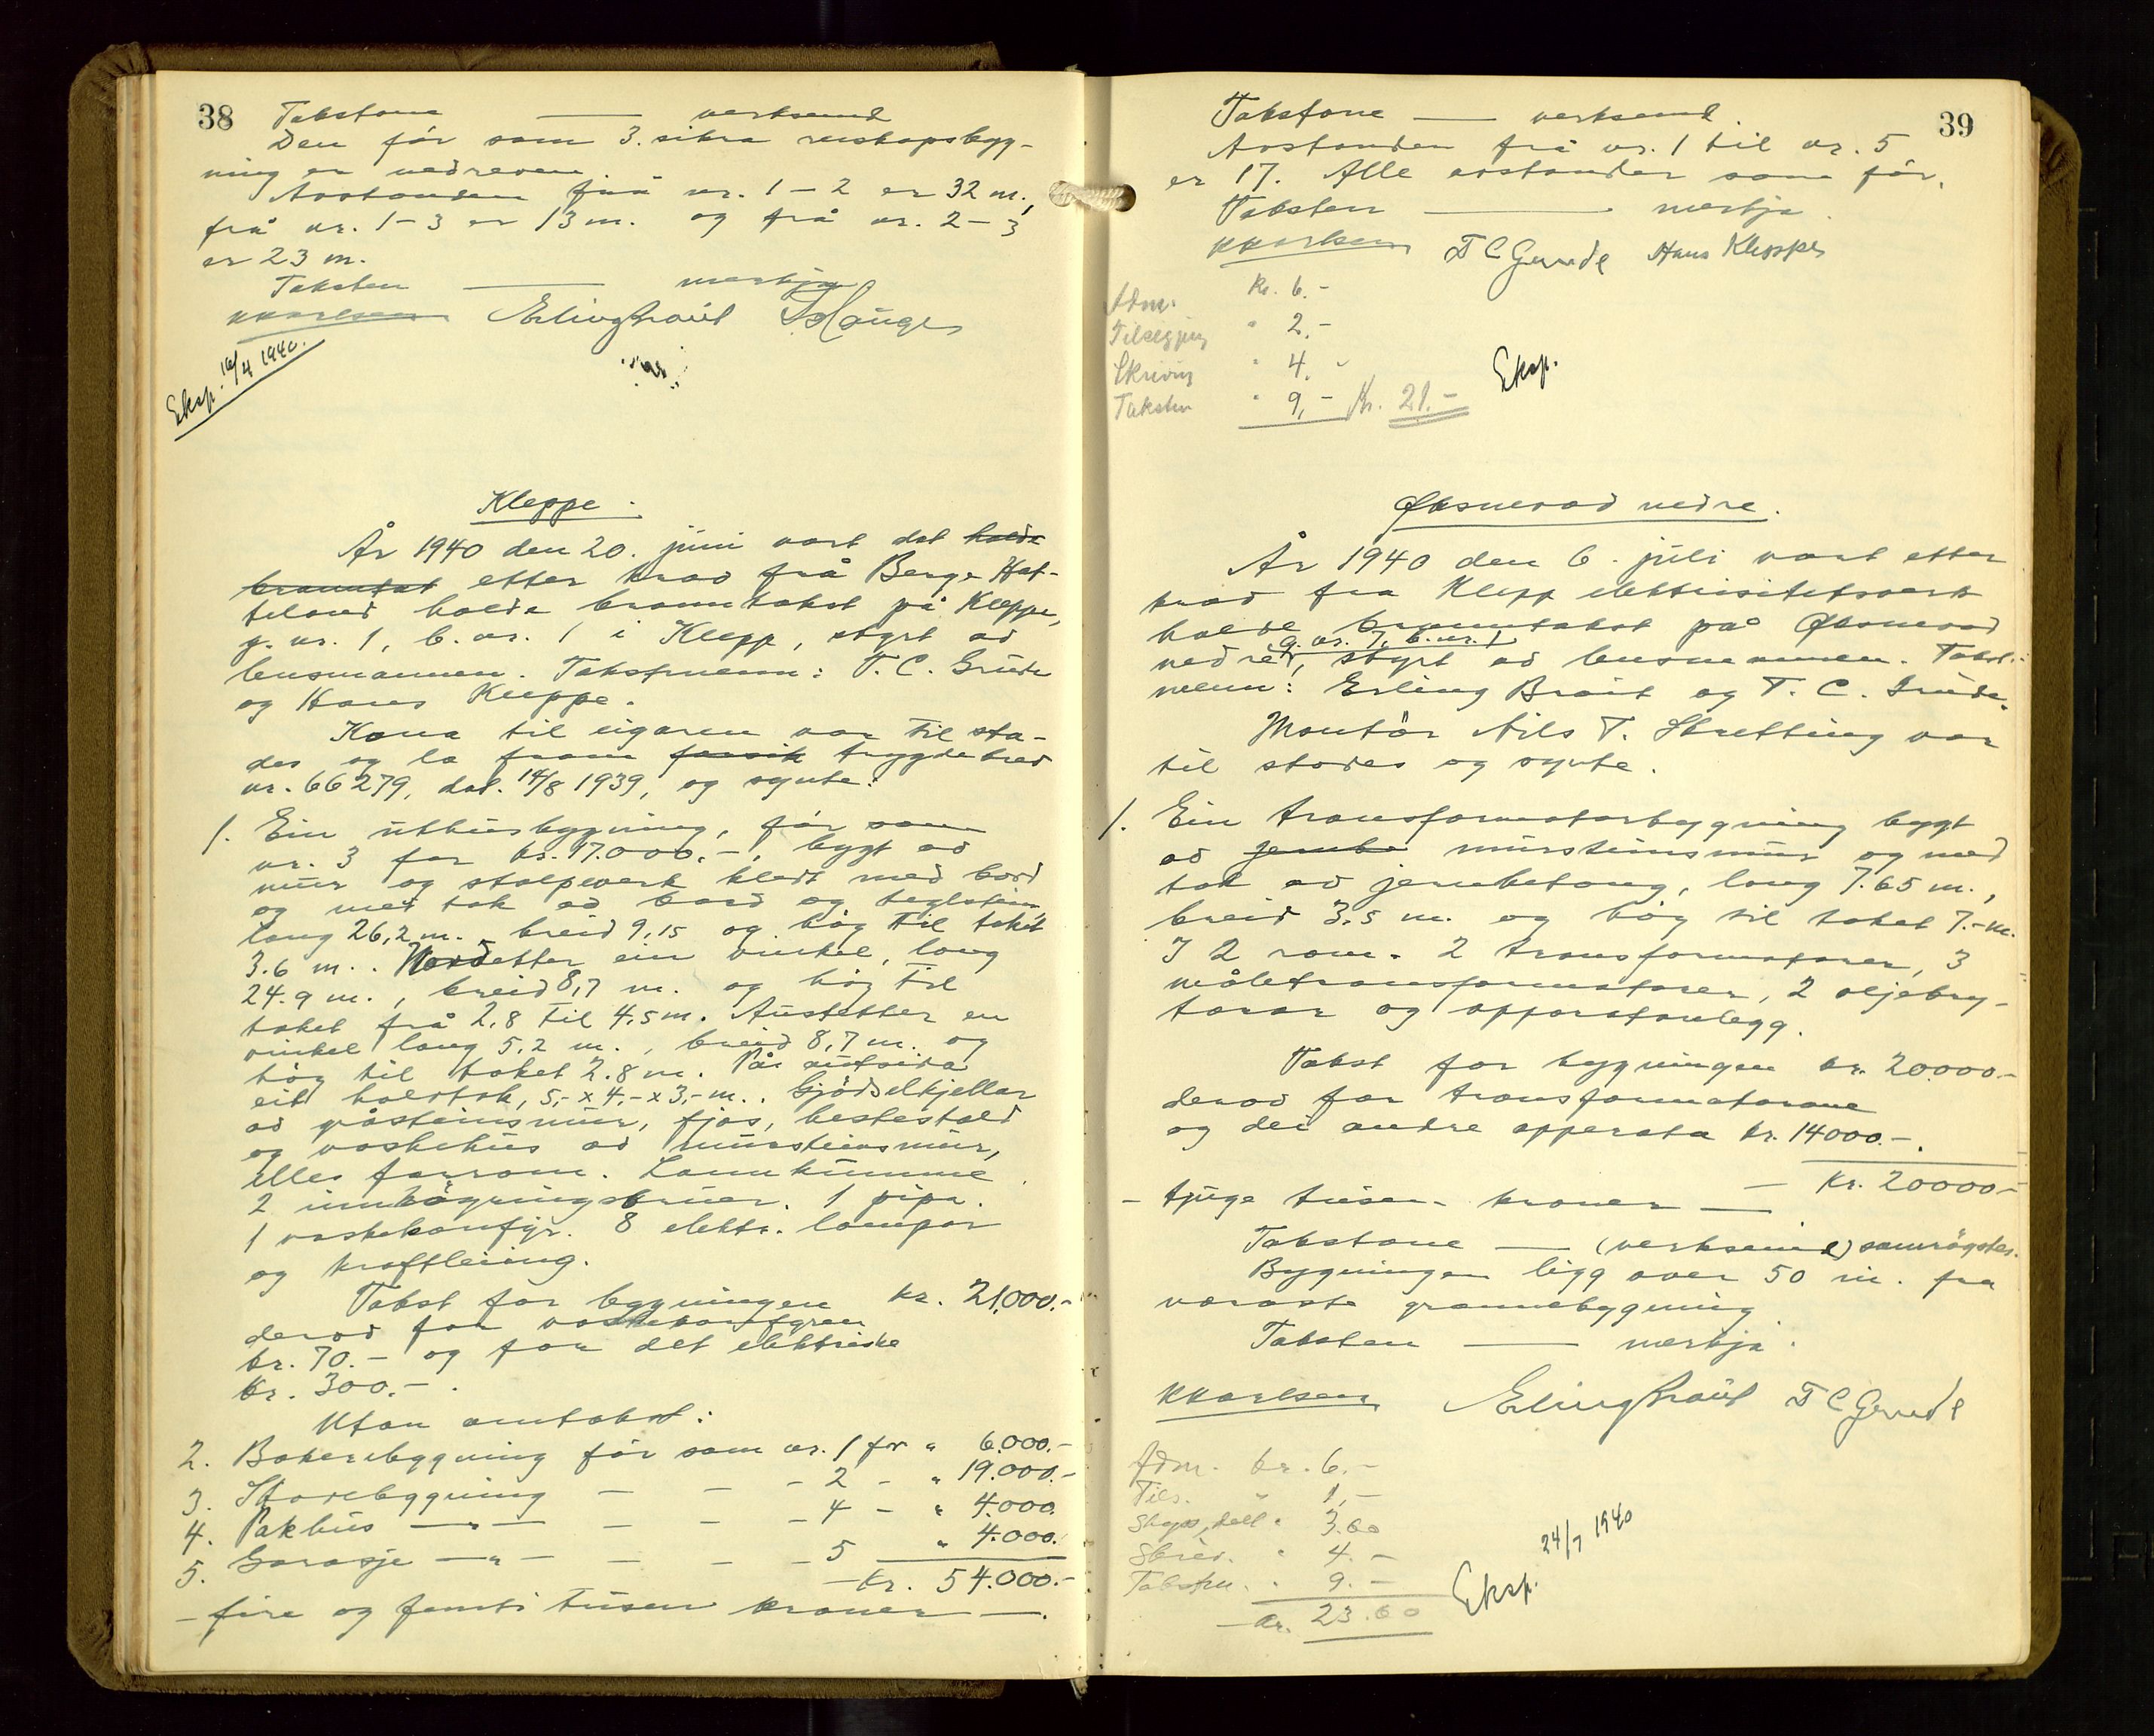 38
Takstane — verksemd
Den før som 3. sikra reiskapsbygg-
ning er nedreven.
Avstanden frå nr. 1 – 2 er 32 m.,
frå nr. 1 – 3 er 13 m. og frå nr. 2 – 3
er 23 m.
Taksten — merkja
KKarlsen Erling Braut
Eksp. 16/4 1940.
Kleppe.
År 1940 den 20. juni vart det halde
branntakst etter krav frå Berge Hat-
teland halde branntakst på Kleppe,
g. nr. 1, b. nr. 1 i Klepp, styrt av
lensmannen. Takstmenn: T. C. Grude
og Hans Kleppe.
Kona til eigaren var til sta-
des og la fram trygdebrev
nr. 66279, dat. 14/8 1939, og synte:
1. Ein uthusbygning, før som
nr. 3 for kr. 17.000.-, bygt av
mur og stolpeverk kledt med bord
og med tak av bord og teglstein,
lang 26,2 m. breid 9,15 og høg til taket
3.6 m.. Nordetter ein vinkel, lang
24.9 m., breid 8,7 m. og høg til
taket frå 2,8 til 4,5 m. Austetter en
vinkel lang 5,2 m., breid 8,7 m. og
høg til taket 2.8 m. På autsida
eit halvtak, 5,- x 4,- x 3,- m.. Gjødselkjellar
av gråsteinsmur, fjøs, hestestald
og vaskehus av mursteinsmur,
elles forrom. Landkumme
2 innkøyringsbruer. 1 pipa.
1 vaskekomfyr. 8 elektr. lampor
og kraftleiing.
Takst for bygningen kr. 21,000.-
derav for vaskekomfyren
kr. 70.- og for det elektriske
kr. 300.-.
Utan omtakst:
2. Bakeribygning før som nr. 1 for " 6.000.-
3. Storebygning — — - 2 - " 19.000.-
4. Pakhus — " — — — - 4 - " 4.000.
5. Garasje — " — — — - 5 " 4.000.
— Kr. 54.000.-
— fire og femti tusen kroner —.
39
Takstane — verksemd.
Avstanden frå nr. 1 til nr. 5
er 17. Alle avstander som før.
Taksten — merkja.
KKarlsen T C Grude Hans Kleppe
Adm. Kr. 6.-
Tilseigjing " 2,-
Skriving " 4. -
Takstm " 9,- Kr. 21.-
Eksp.
Øksnevad nedre.
År 1940 den 6. juli vart etter
krav fra Klepp elektrisitetsverk
halde branntakst på Øksnevad
g. nr. 7, b. nr. 1
nedre, styrt av lensmannen. Takst-
menn: Erling Braut og T. C. Grude.
Montør Nils T. Skretting var
til stades og synte.
1. Ein transformatorbygning bygt
av jernbe mursteinsmur og med
tak av jernbetong, lang 7.65 m.,
breid 3,5 m. og høg til taket 7.- m.
I 2 rom. 2 transformatorer, 3
måletransformatorer, 2 oljebry-
tarar og apparatanlegg.
Takst for bygningen kr. 20.000.-
derav for transformatorane
og dei andre apparata kr. 14000.-.
— Kr. 20000.-
— tjuge tusen kroner —
Takstane — (verksemd) samrøystes.
Bygningen ligg over 50 m. fra
næraste grannebygning
Taksten — merkja.
KKarlsen Erling Braut T C Grude
Adm. kr. 6.-
Tils. " 1,-
Skyss, " 3.60
Skriv. " 4.-
Takstm. " 9.-
kr. 23.60
Eksp. 24/7 1940